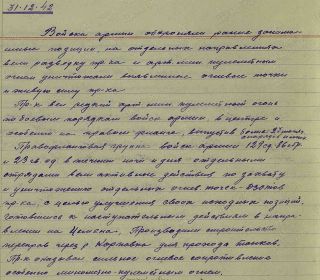 31-12-42
Войска армии обороняли ранее занимае
мые позиции, на отдельных направлениях
вели разведку пр-ка и арт. мин. пулеметным
огнем уничтожали выявленные огневые точки
и живую силу пр-ка.
Пр-к вел редкий арт. мин. пулеметный огонь
по боевым порядкам войск армии в центре и
особенно на правом фланге, выпустив более
Правофланговая группа войск армии
и 23 в течении ночи и дня отдельными
отрядами вели активные действия по захвату
и уничтожению отдельных огнев. точек - дзотов
пр-ка, с целью улучшения своих исходных позиций.
Готовились к наступательным действиям в напра-
влении на Производили строительство
переправ через р. для прохода танков.
Пр-к оказывал сильное огневое сопротивление
особенно минометно-пулеметным огнем.